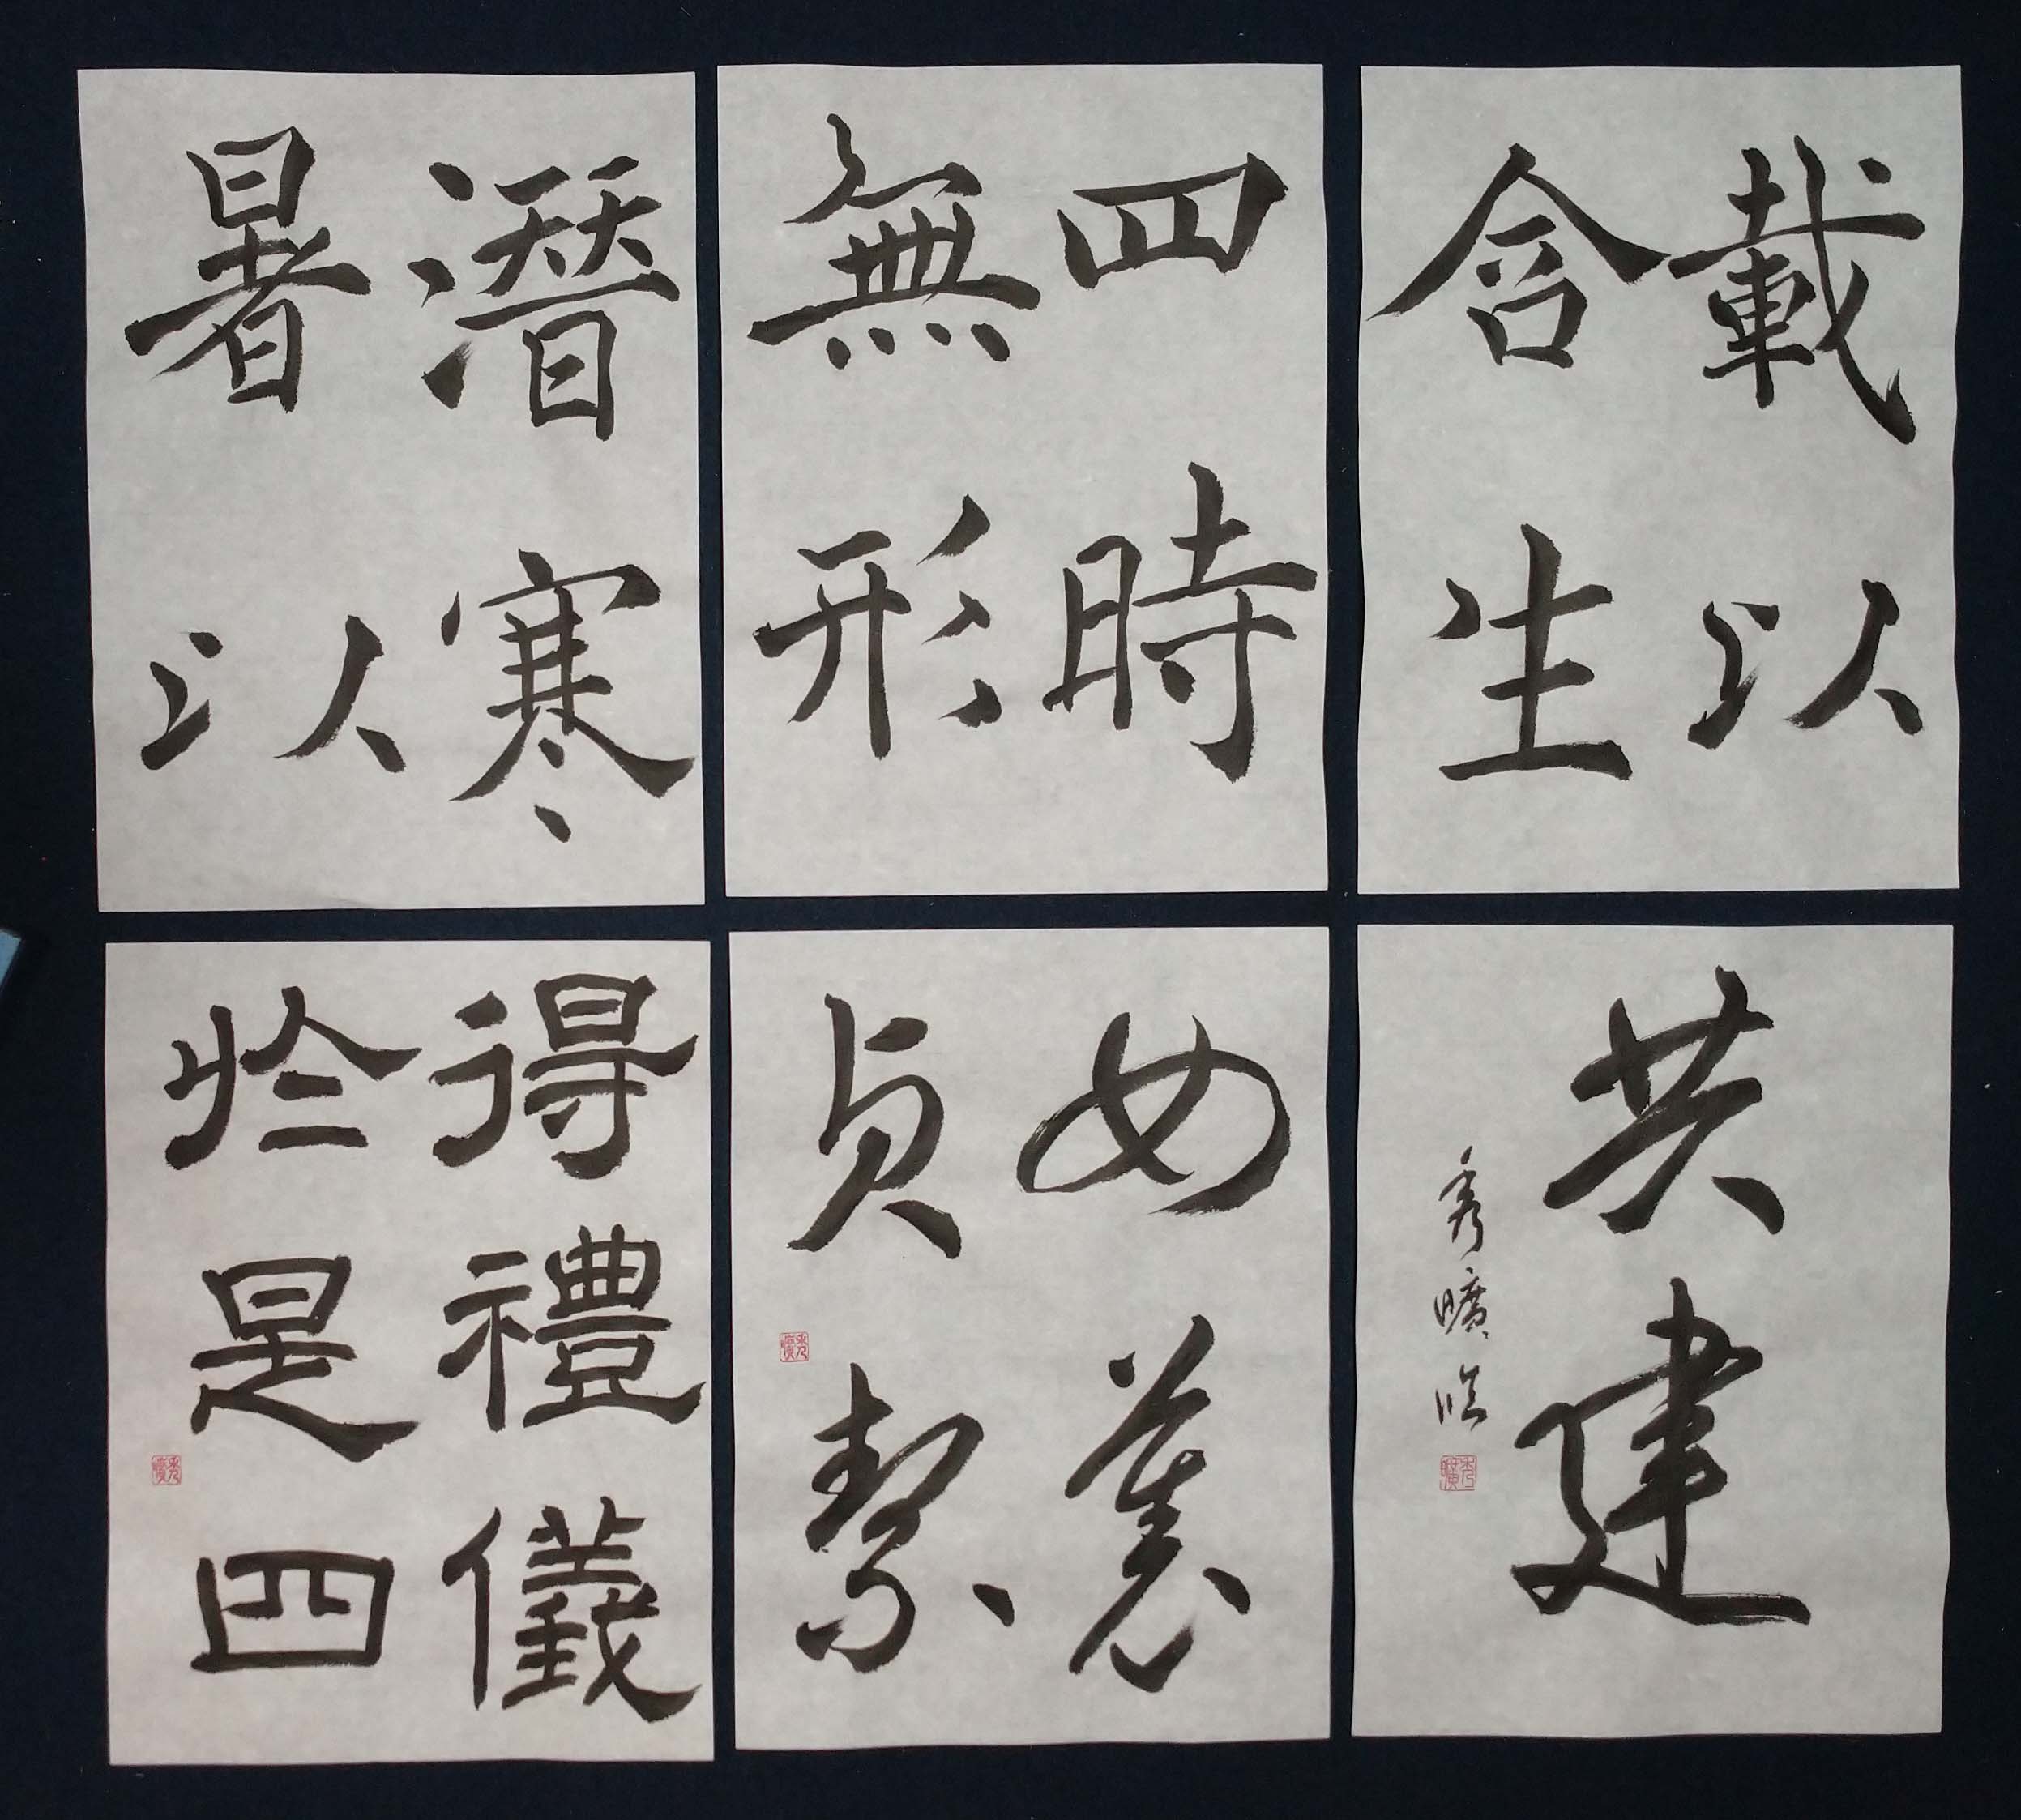 載以
含生
四時
無形
潜寒
暑以
共建
秀曠臨
女慕
貞絜
得禮儀
於是四